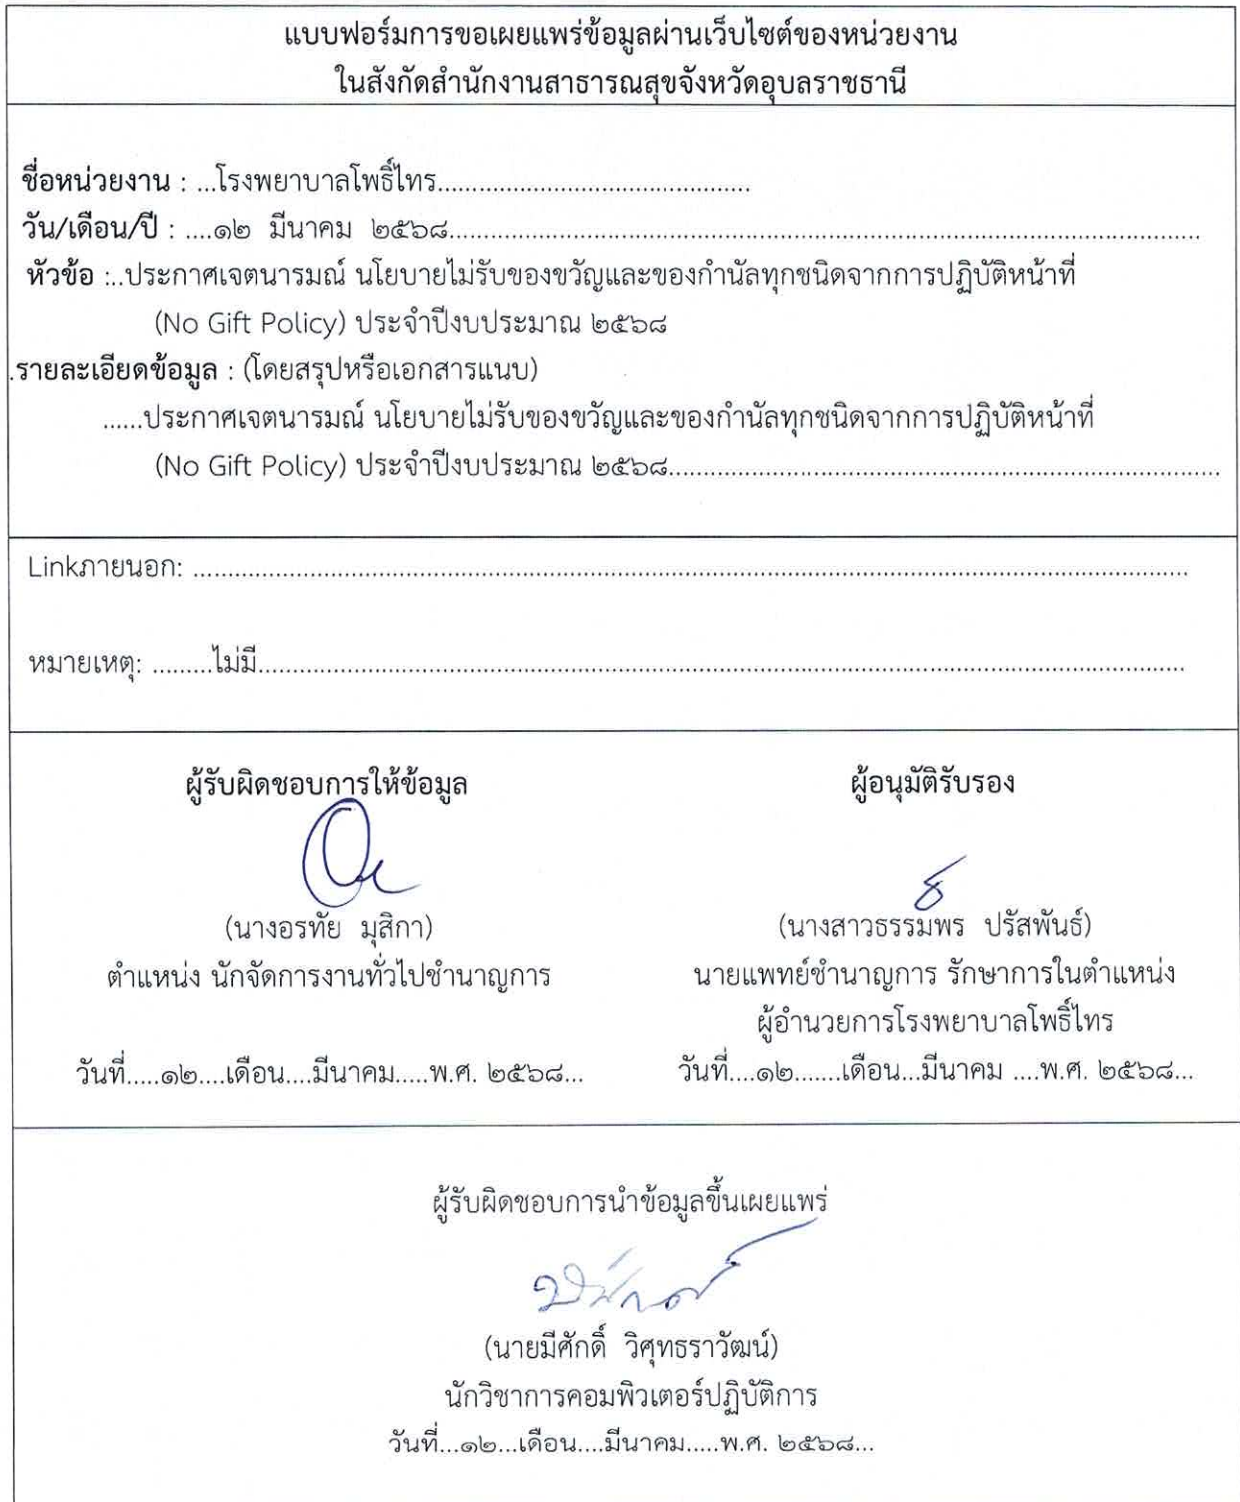 แบบฟอร์มการขอเผยแพร่ข้อมูลผ่านเว็บไซต์ของหน่วยงาน
ในสังกัดสำนักงานสาธารณสุขจังหวัดอุบลราชธานี
ชื่อหน่วยงาน : ...โรงพยาบาลโพธิ์ไทร.............................................
วัน/เดือน/ปี : ....๑๒ มีนาคม ๒๕๖๘.............................................................................................................
หัวข้อ :..ประกาศเจตนารมณ์ นโยบายไม่รับของขวัญและของกำนัลทุกชนิดจากการปฏิบัติหน้าที่
(No Gift Policy) ประจำปีงบประมาณ ๒๕๖๘
.รายละเอียดข้อมูล : (โดยสรุปหรือเอกสารแนบ)
......ประกาศเจตนารมณ์ นโยบายไม่รับของขวัญและของกำนัลทุกชนิดจากการปฏิบัติหน้าที่
(No Gift Policy) ประจำปีงบประมาณ ๒๕๖๘................................................................................
Linkภายนอก: ................................................................................................................................................
หมายเหตุ: .........ไม่มี......................................................................................................................................
ผู้รับผิดชอบการให้ข้อมูล ผู้อนุมัติรับรอง
(นางอรทัย มุสิกา) (นางสาวธรรมพร ปรัสพันธ์)
ตำแหน่ง นักจัดการงานทั่วไปชำนาญการ นายแพทย์ชำนาญการ รักษาการในตำแหน่ง
ผู้อำนวยการโรงพยาบาลโพธิ์ไทร
วันที่.....๑๒....เดือน....มีนาคม.....พ.ศ. ๒๕๖๘... วันที่....๑๒.......เดือน...มีนาคม ....พ.ศ. ๒๕๖๘...
ผู้รับผิดชอบการนำข้อมูลขึ้นเผยแพร่
(นายมีศักดิ์ วิศุทธราวัฒน์)
นักวิชาการคอมพิวเตอร์ปฏิบัติการ
วันที่...๑๒...เดือน....มีนาคม.....พ.ศ. ๒๕๖๘...